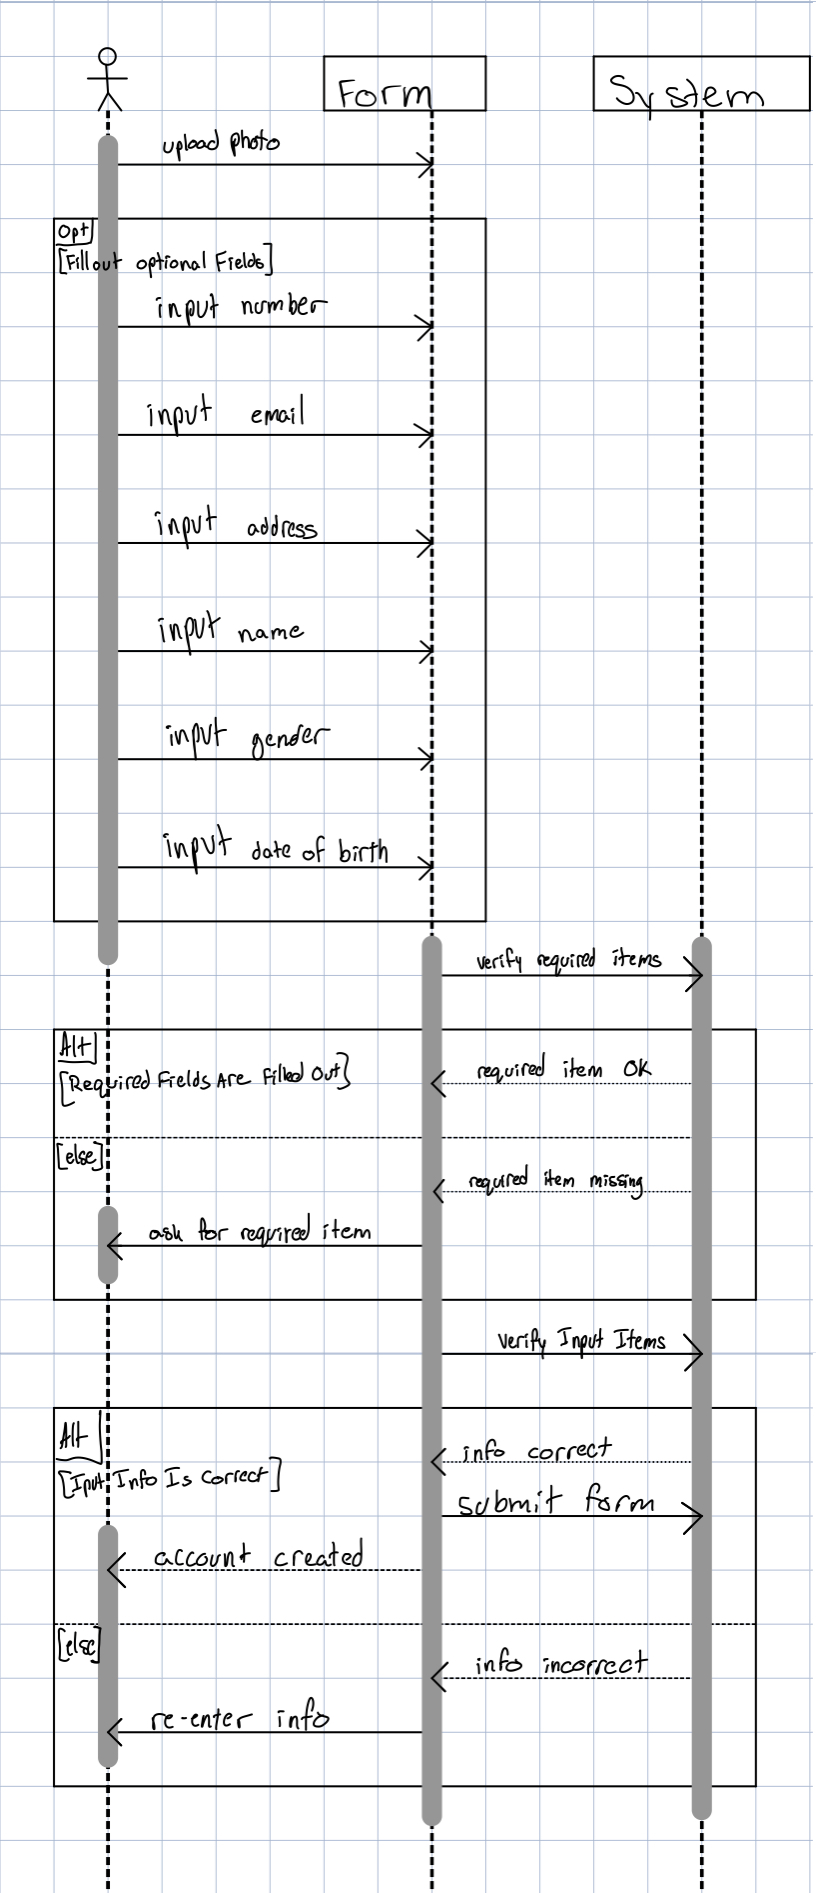 Form
System
upload photo
Opt
[Fill out optional Fields]
input number
input email
input address
input name
input gender
input date of birth
verify required items
Alt
[Required Fields Are Filled Out]
required item OK
[else]
required item missing
ask for required item
Verify Input Items
Alt
info correct
[Input Info Is Correct]
submit form
account created
[else]
info incorrect
re-enter info